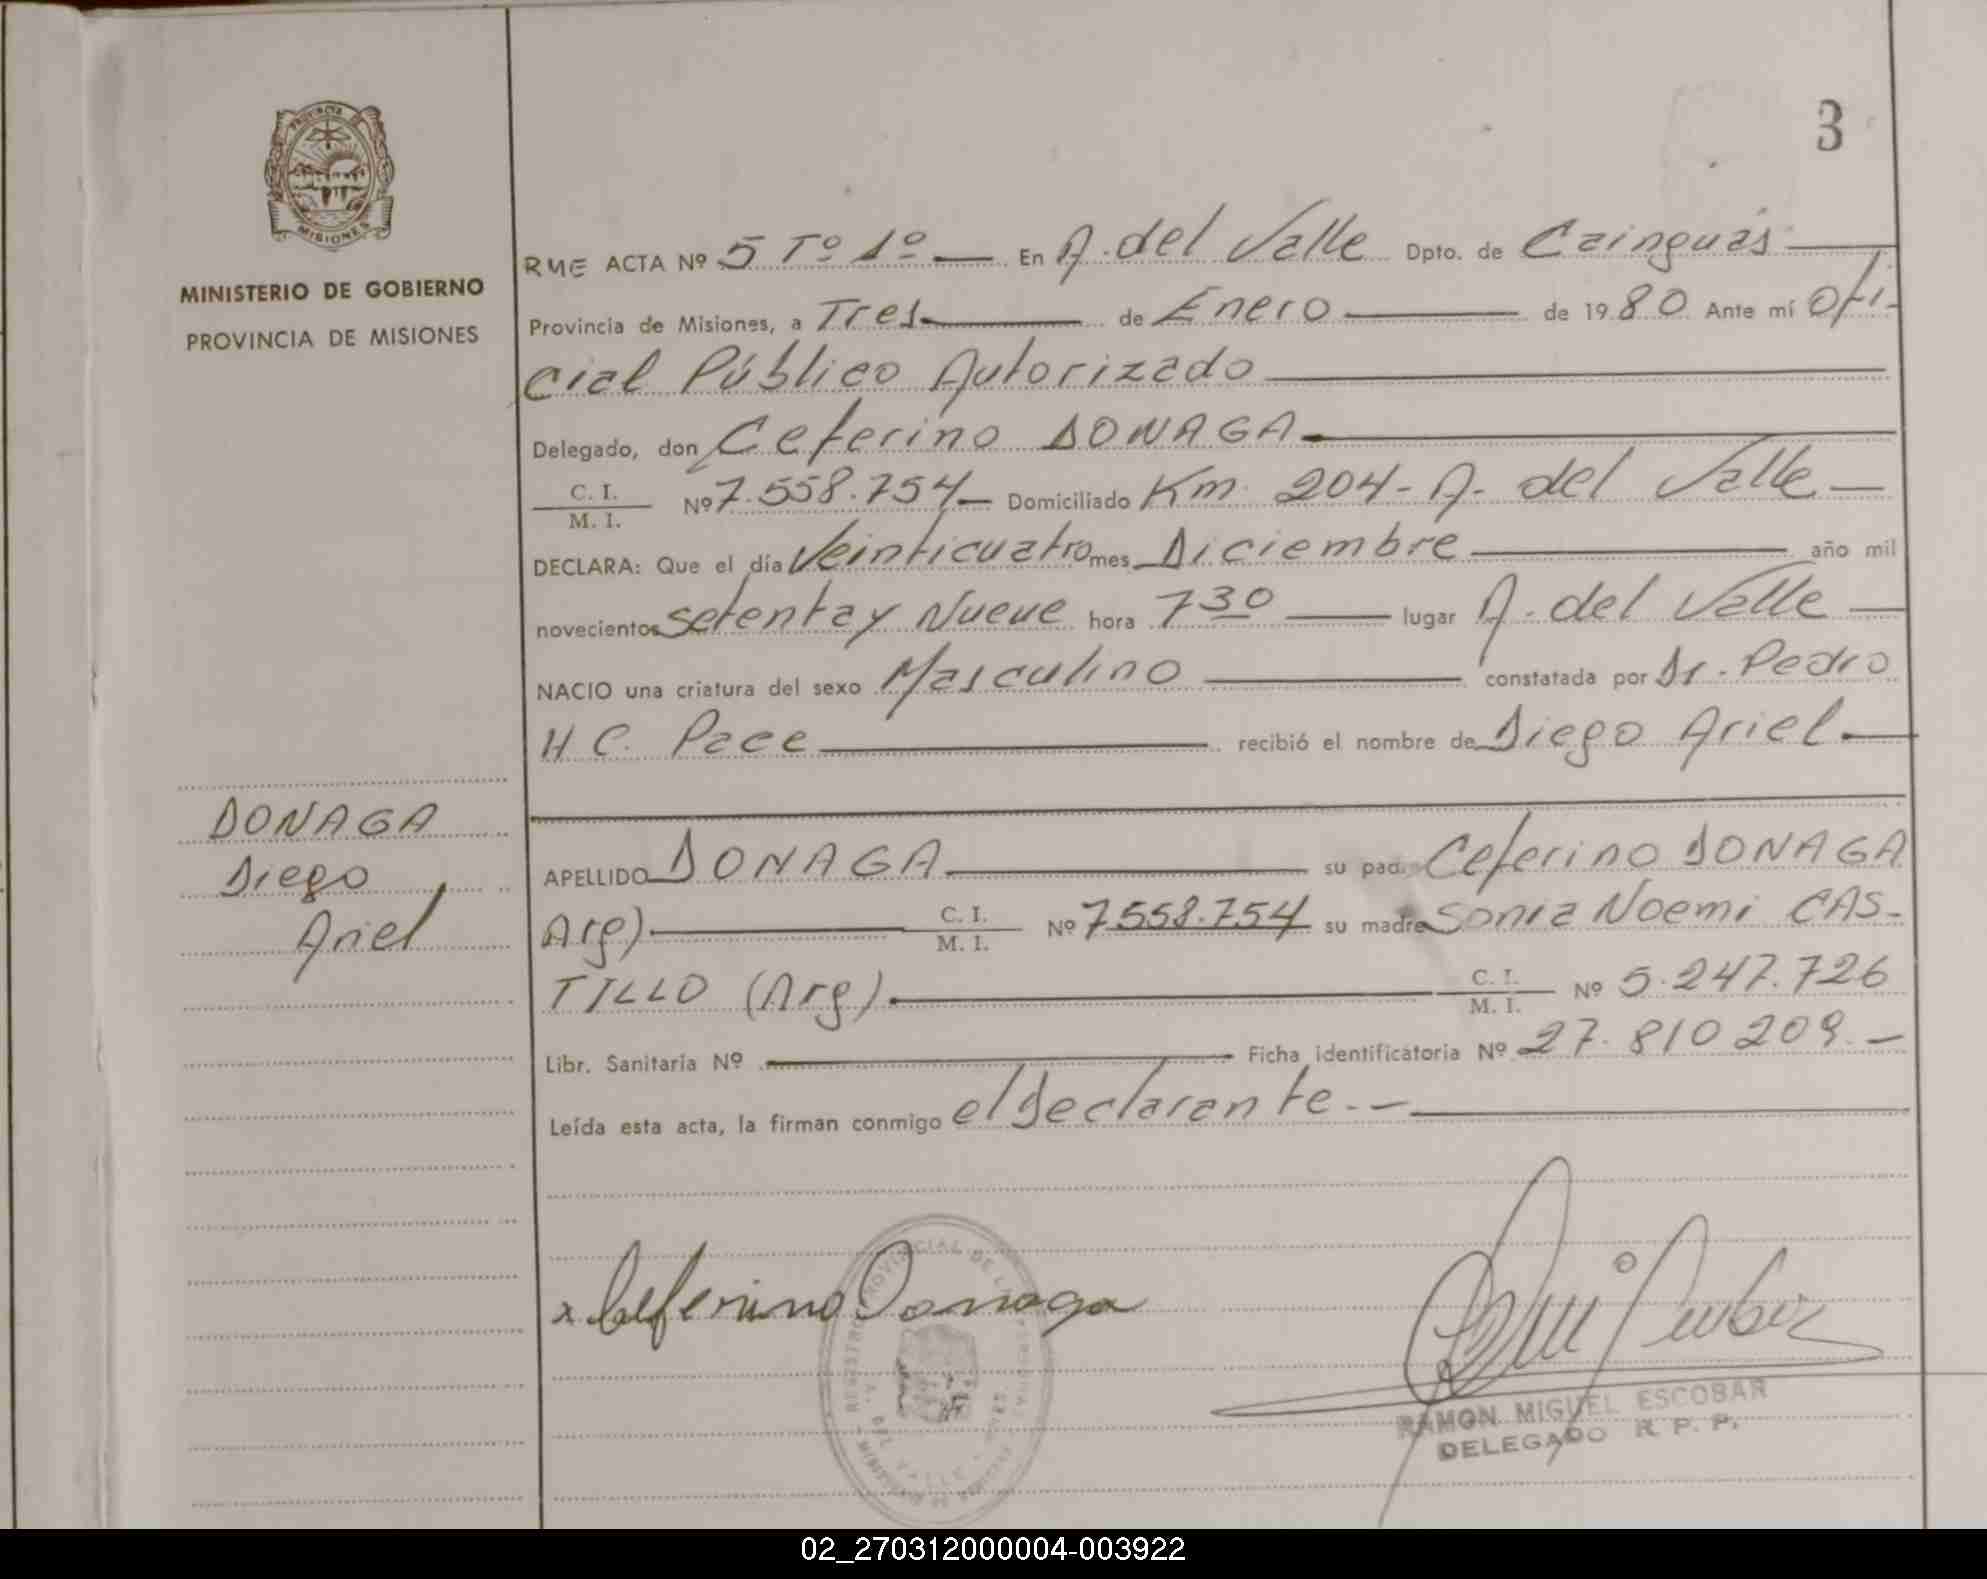 3
PROVINCIA DE
MISIONES
MINISTERIO DE GOBIERNO
PROVINCIA DE MISIONES
RME ACTA Nº 5 Tº 1º En A. del Valle Dpto. de Cainguás
Provincia de Misiones, a Tres de Enero de 1980 Ante mí Ofi-
cial Público Autorizado
Delegado, don Ceferino DONAGA
C. I. / M. I. Nº 7.558.754 Domiciliado Km. 204 - A. del Valle
DECLARA: Que el día Veinticuatro mes Diciembre año mil
novecientos setenta y Nueve hora 7 30 lugar A. del Valle
NACIO una criatura del sexo Masculino constatada por Dr. Pedro
H C. Pace recibió el nombre de Diego Ariel
DONAGA
Diego
Ariel
APELLIDO DONAGA su padre Ceferino DONAGA
Arg) C. I. / M. I. Nº 7558.754 su madre Sonia Noemi CAS-
TILLO (Arg) C. I. / M. I. Nº 5.247.726
Libr. Sanitaria Nº Ficha identificatoria Nº 27.810209.-
Leída esta acta, la firman conmigo el declarante.-
x Ceferino Donaga
REGISTRO PROVINCIAL DE LAS PERSONAS
A. DEL VALLE
RAMON MIGUEL ESCOBAR
DELEGADO R. P. P.
02_270312000004-003922